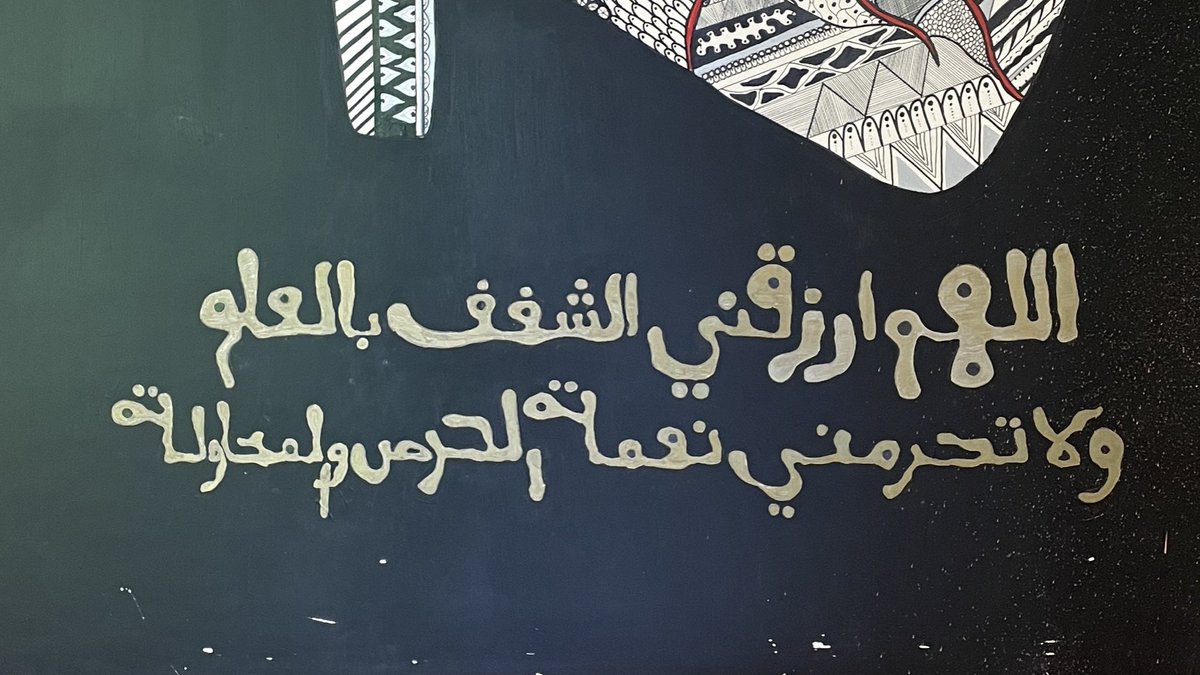 اللهم ارزقني الشغف بالعلم
ولا تحرمني نعمة الحرص والمحاولة